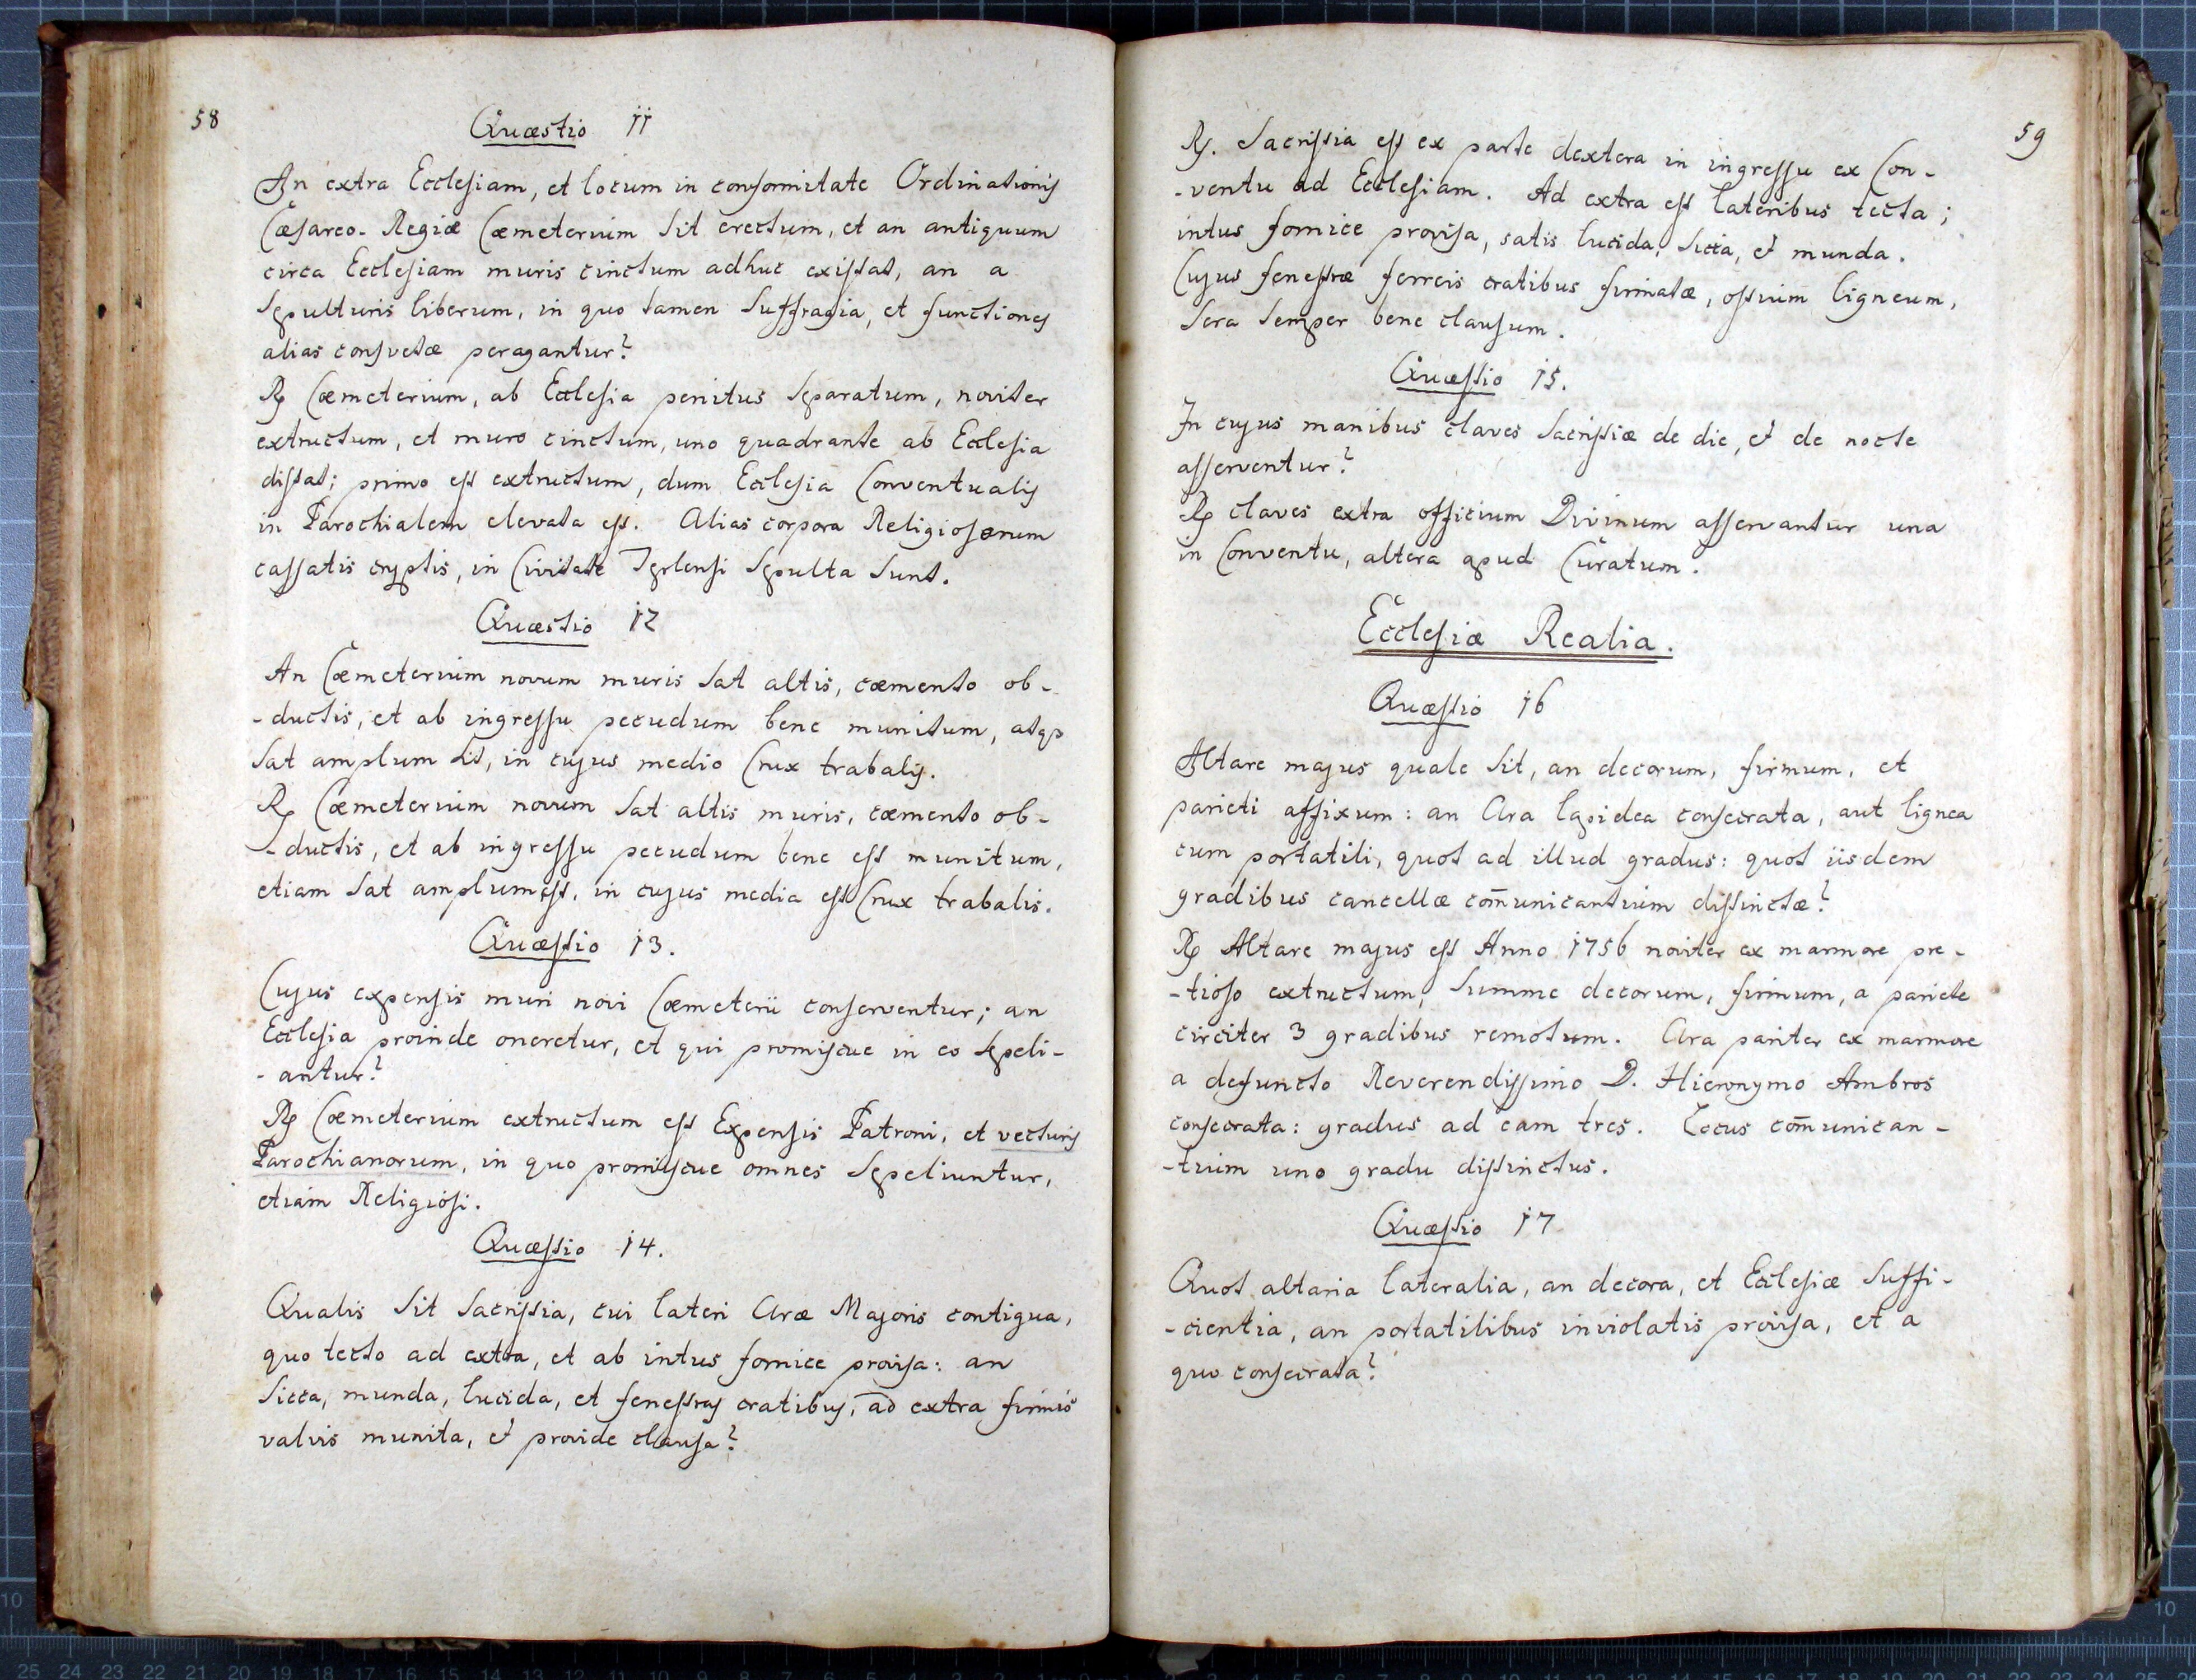 58
Quæstio 11
An extra Ecclesiam, et locum in conformitate Ordinationis
Cæsareo-Regiæ Cæmeterium sit erectum, et an antiquum
circa Ecclesiam muris cinctum adhuc existat, an a
sepulturis liberum, in quo tamen suffragia, et functiones
alias consvetæ peragantur?
R̷ Cæmeterium, ab Ecclesia penitus separatum, noviter
extructum, et muro cinctum, uno quadrante ab Ecclesia
distat; primo est extructum, dum Ecclesia Conventualis
in Parochialem elevata est. Alias corpora Religiosorum
cassatis cryptis, in Civitate Iglensi sepulta sunt.
Quæstio 12
An Cæmeterium novum muris sat altis, cæmento ob-
-ductis, et ab ingressu pecudum bene munitum, atq3
sat amplum sit, in cujus medio Crux trabalis.
R̷ Cæmeterium novum sat altis muris, cæmento ob-
-ductis, et ab ingressu pecudum bene est munitum,
etiam sat amplum est, in cujus media est Crux trabalis.
Quæstio 13.
Cujus expensis muri novi Cæmeterii conserventur; an
Ecclesia proinde oneretur, et qui promiscue in eo sepeli-
-antur?
R̷ Cæmeterium extructum est Expensis Patroni, et vecturis
Parochianorum, in quo promiscue omnes sepeliuntur,
etiam Religiosi.
Quæstio 14.
Qualis sit sacristia, cui lateri Aræ Majoris contigua,
quo tecto ad extra, et ab intus fornice provisa: an
sicca, munda, lucida, et fenestras cratibus, ad extra firmis
valvis munita, et provide clausa?
59
R̷. Sacristia est ex parte dextera in ingressu ex Con-
-ventu ad Ecclesiam. Ad extra est lateribus tecta;
intus fornice provisa, satis lucida, sicca, et munda.
Cujus fenestræ ferreis cratibus firmatæ, ostium ligneum,
sera semper bene clausum.
Quæstio 15.
In cujus manibus claves sacristiæ de die, et de nocte
asserventur?
R̷ claves extra officium Divinum asservantur una
in Conventu, altera apud Curatum.
Ecclesiæ Realia.
Quæstio 16
Altare majus quale sit, an decorum, firmum, et
parieti affixum: an Ara lapidea consecrata, aut lignea
cum portatili, quot ad illud gradus: quot iisdem
gradibus cancellæ com̄unicantium distinctæ?
R̷ Altare majus est Anno 1756 noviter ex marmore pre-
-tioso extructum, summe decorum, firmum, a pariete
circiter 3 gradibus remotum. Ara pariter ex marmore
a defuncto Reverendissimo D. Hieronymo Ambros
consecrata: gradus ad eam tres. Locus com̄unican-
-tium uno gradu distinctus.
Quæstio 17
Quot altaria lateralia, an decora, et Ecclesiæ suffi-
-cientia, an portatilibus inviolatis provisa, et a
quo consecrata?